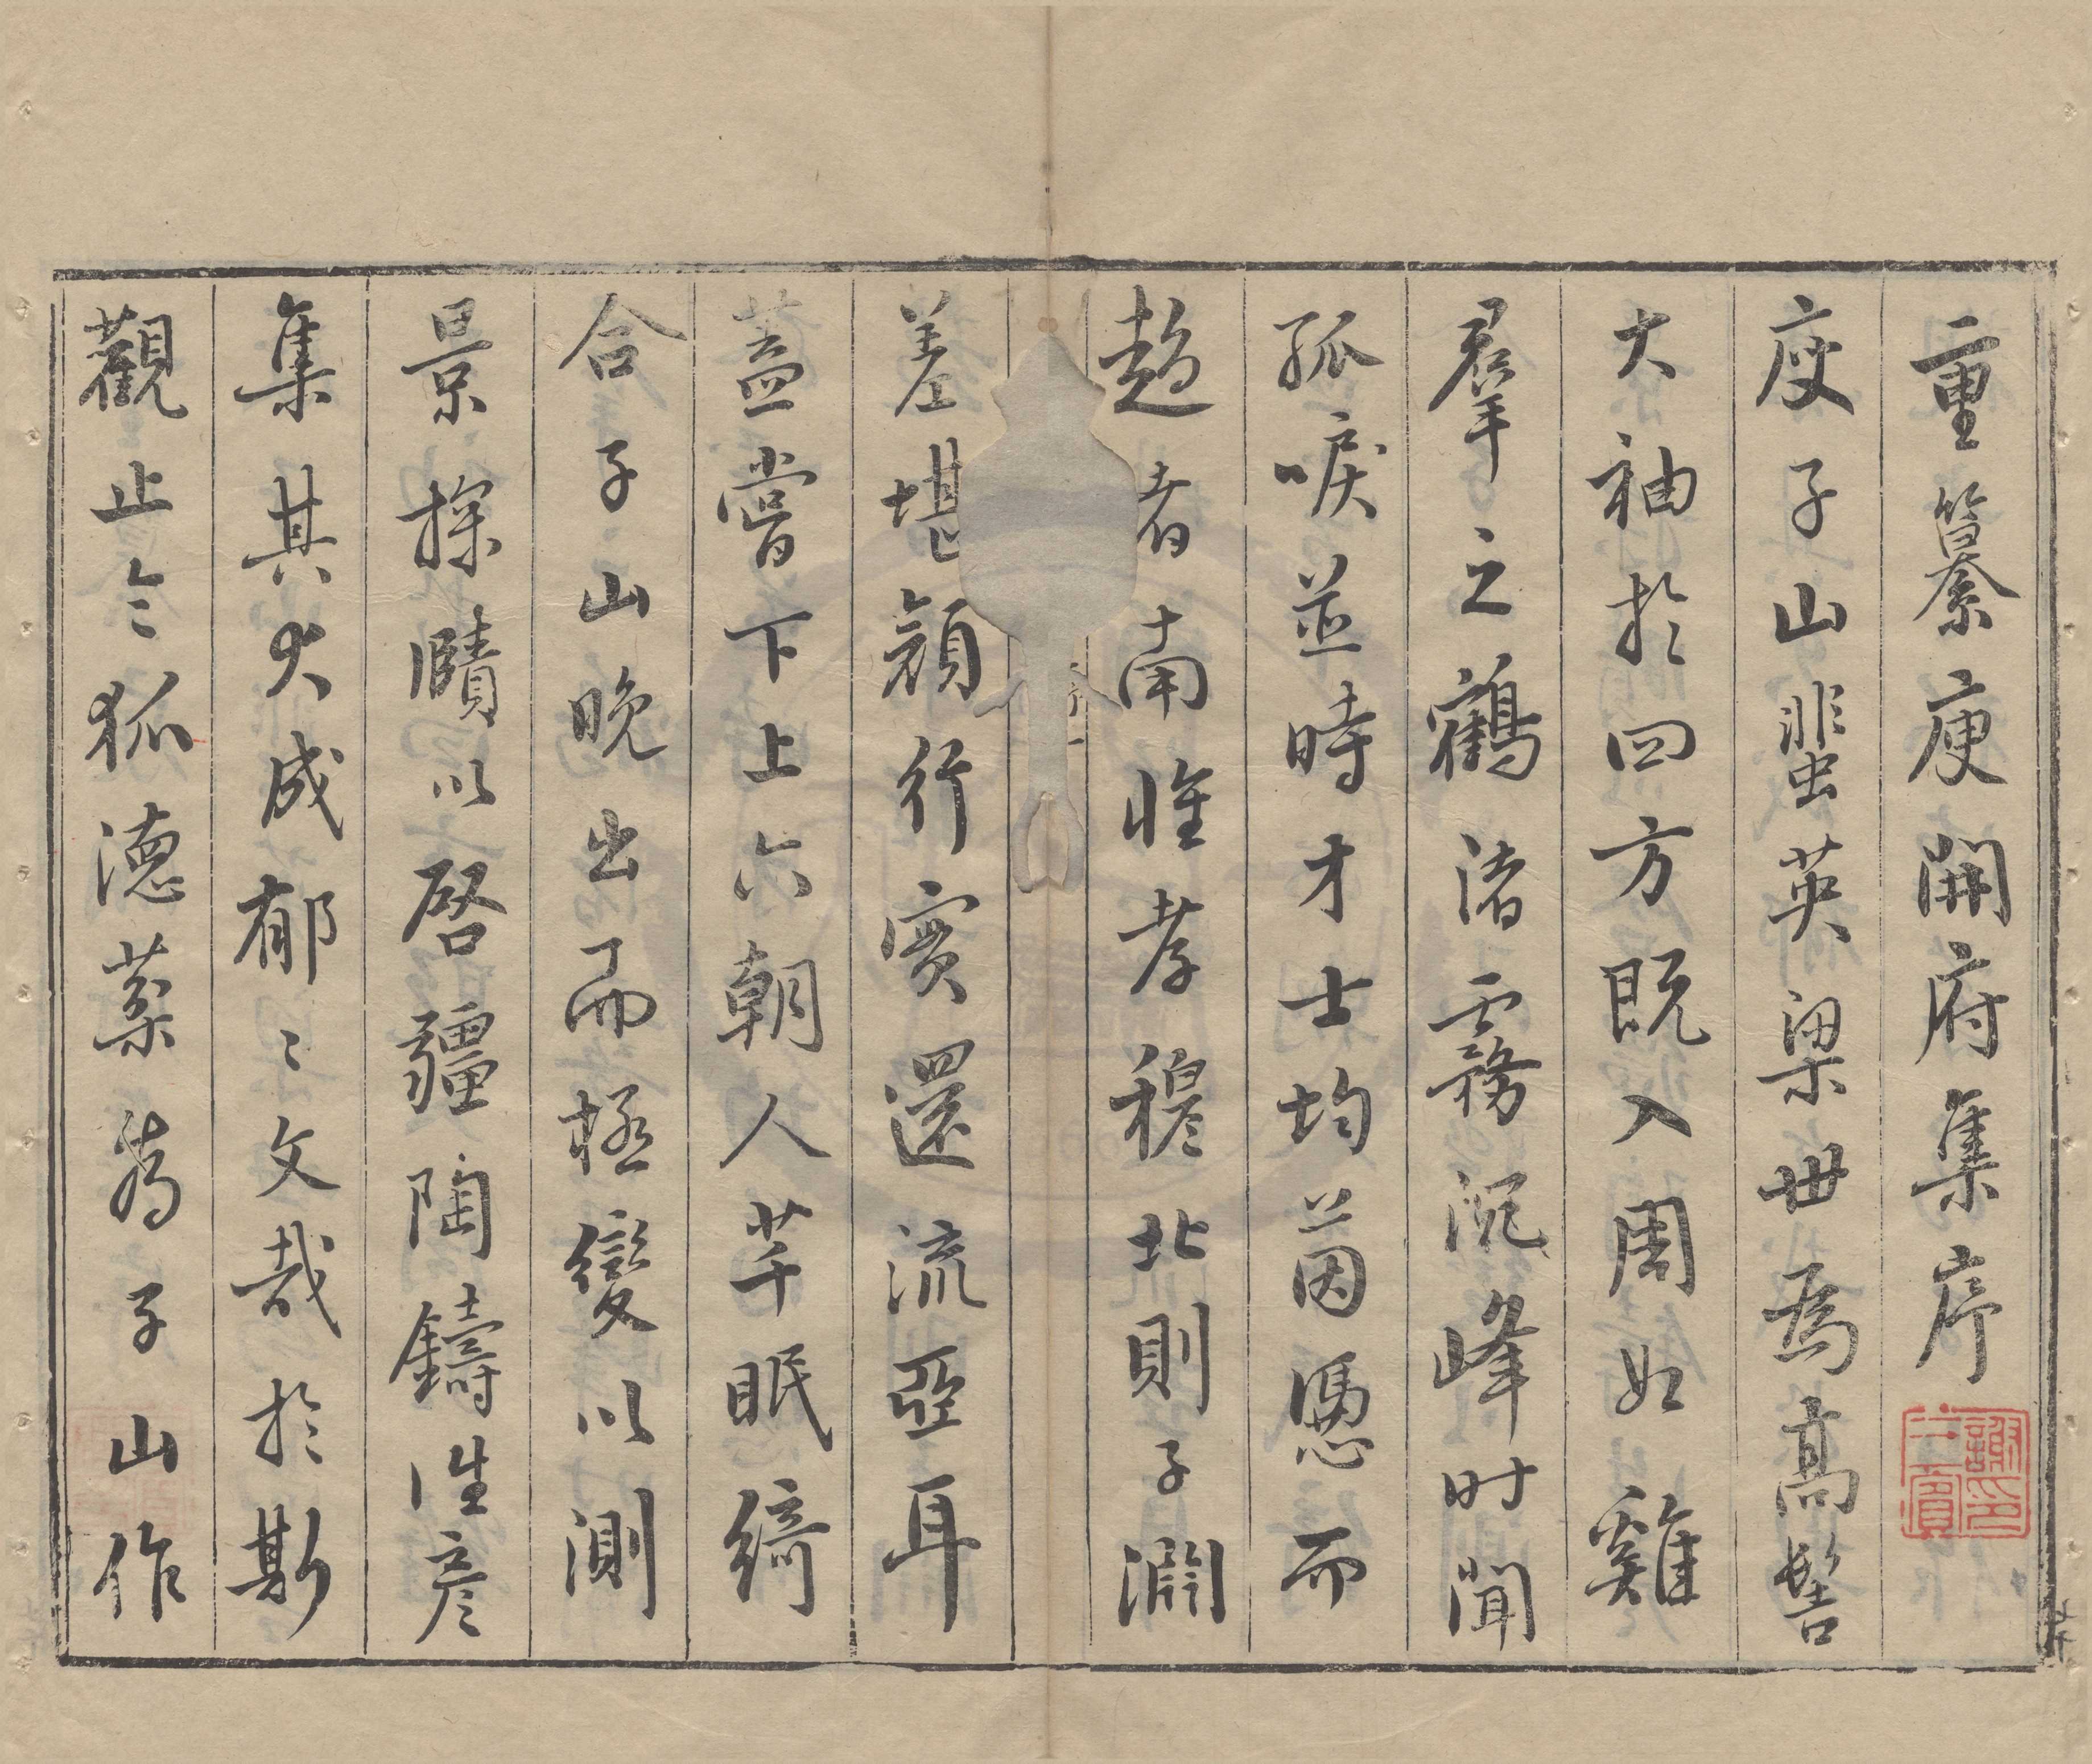 重纂庾開府集序
庾子山蜚英梁世爲高髻
大袖於四方既入周如雞
羣之鶴渚霧沉峰时聞
孤唳並時才士均茵憑而
趍者南惟孝穆北則子淵
差堪頡行實還流亞耳
蓋嘗下上六朝人芊眠綺
合子山晚出而極變以測
景探賾以啓疆陶鑄性彦
集其大成郁〻文哉於斯
觀止令狐德棻爲子山作